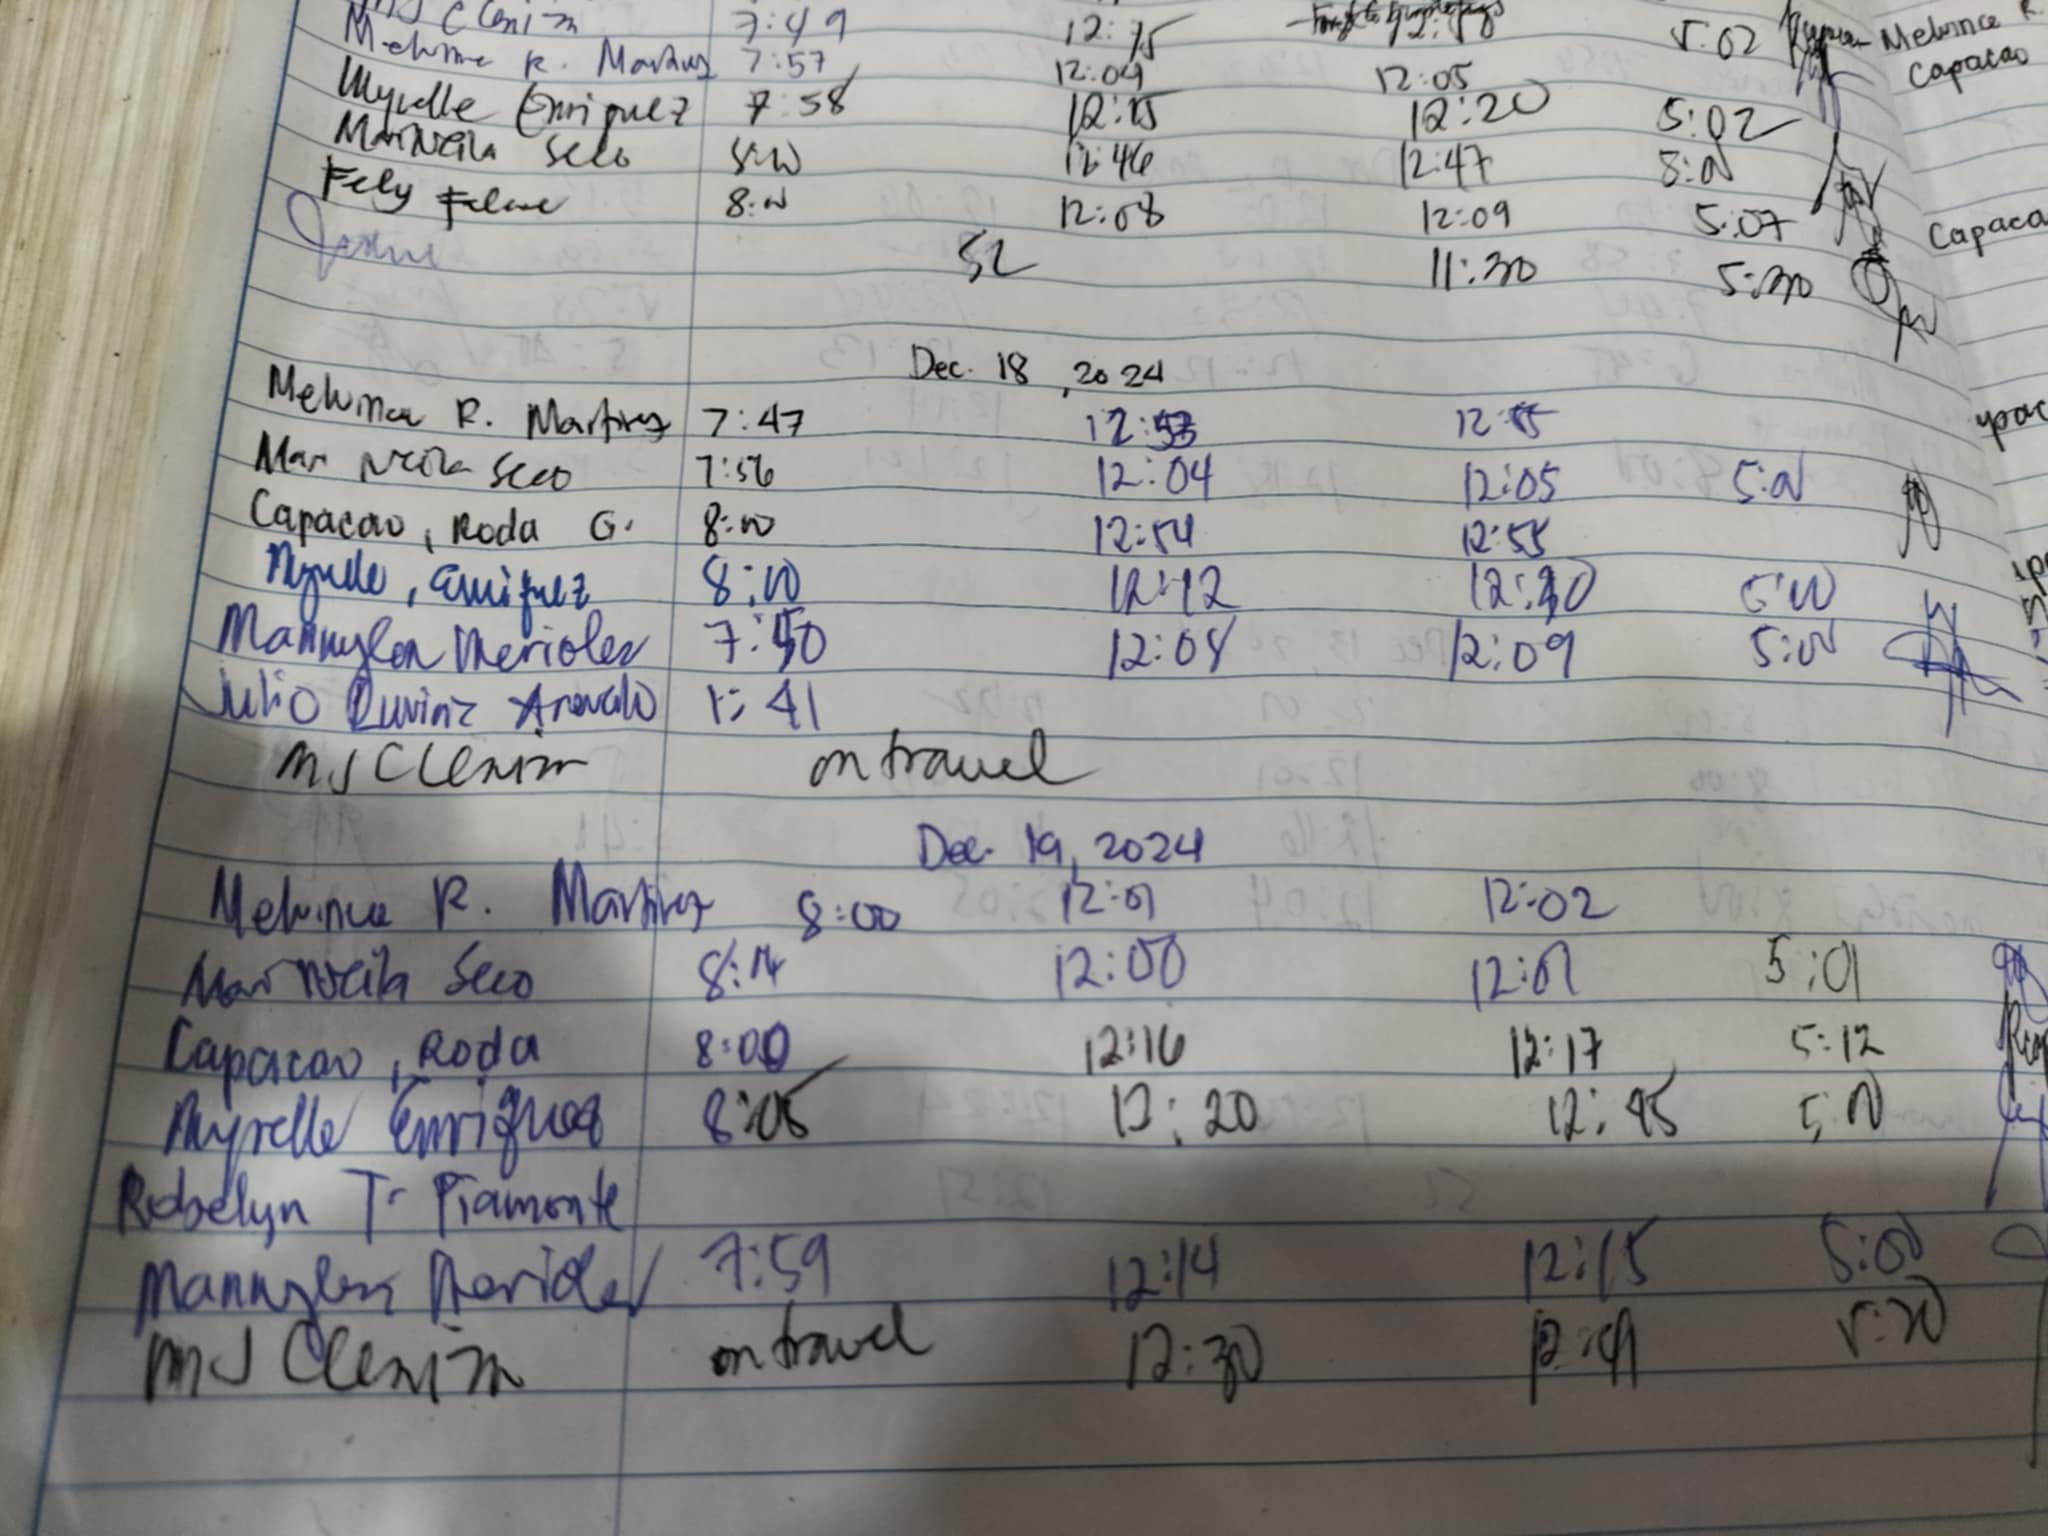 MJ Clenizn 7:49 12:15 5:02 Melvinca R.
Melvinca R. Martinez 7:57 12:04 12:05 Capacao
Myrelle Enriquez 7:58 12:15 12:20 5:02
Mar Neila Seco 8:00 12:46 12:47
Fely 8:00 12:08 12:09 5:07 Capaca
SL 11:30 5:30
Dec. 18, 2024
Melvinca R. Martinez 7:47 12:53 12:55
Mar Neila Seco 7:56 12:04 12:05 5:01
Capacao, Roda G. 8:00 12:54 12:55
Myrelle, Enriquez 8:00 12:12 12:30 5:00
Mannylen Merioles 7:50 12:08 12:09 5:00
Julio Arevalo 1:41
MJ Clenizn on travel
Dec. 19, 2024
Melvinca R. Martinez 8:00 12:01 12:02
Mar Neila Seco 8:14 12:00 12:01 5:01
Capacao, Roda 8:00 12:16 12:17 5:12
Myrelle Enriquez 8:05 12:20 12:45 5:00
Robelyn T. Piamonte
Mannylen Merioles 7:59 12:14 12:15 5:00
MJ Clenizn on travel 12:30 12:41 5:30